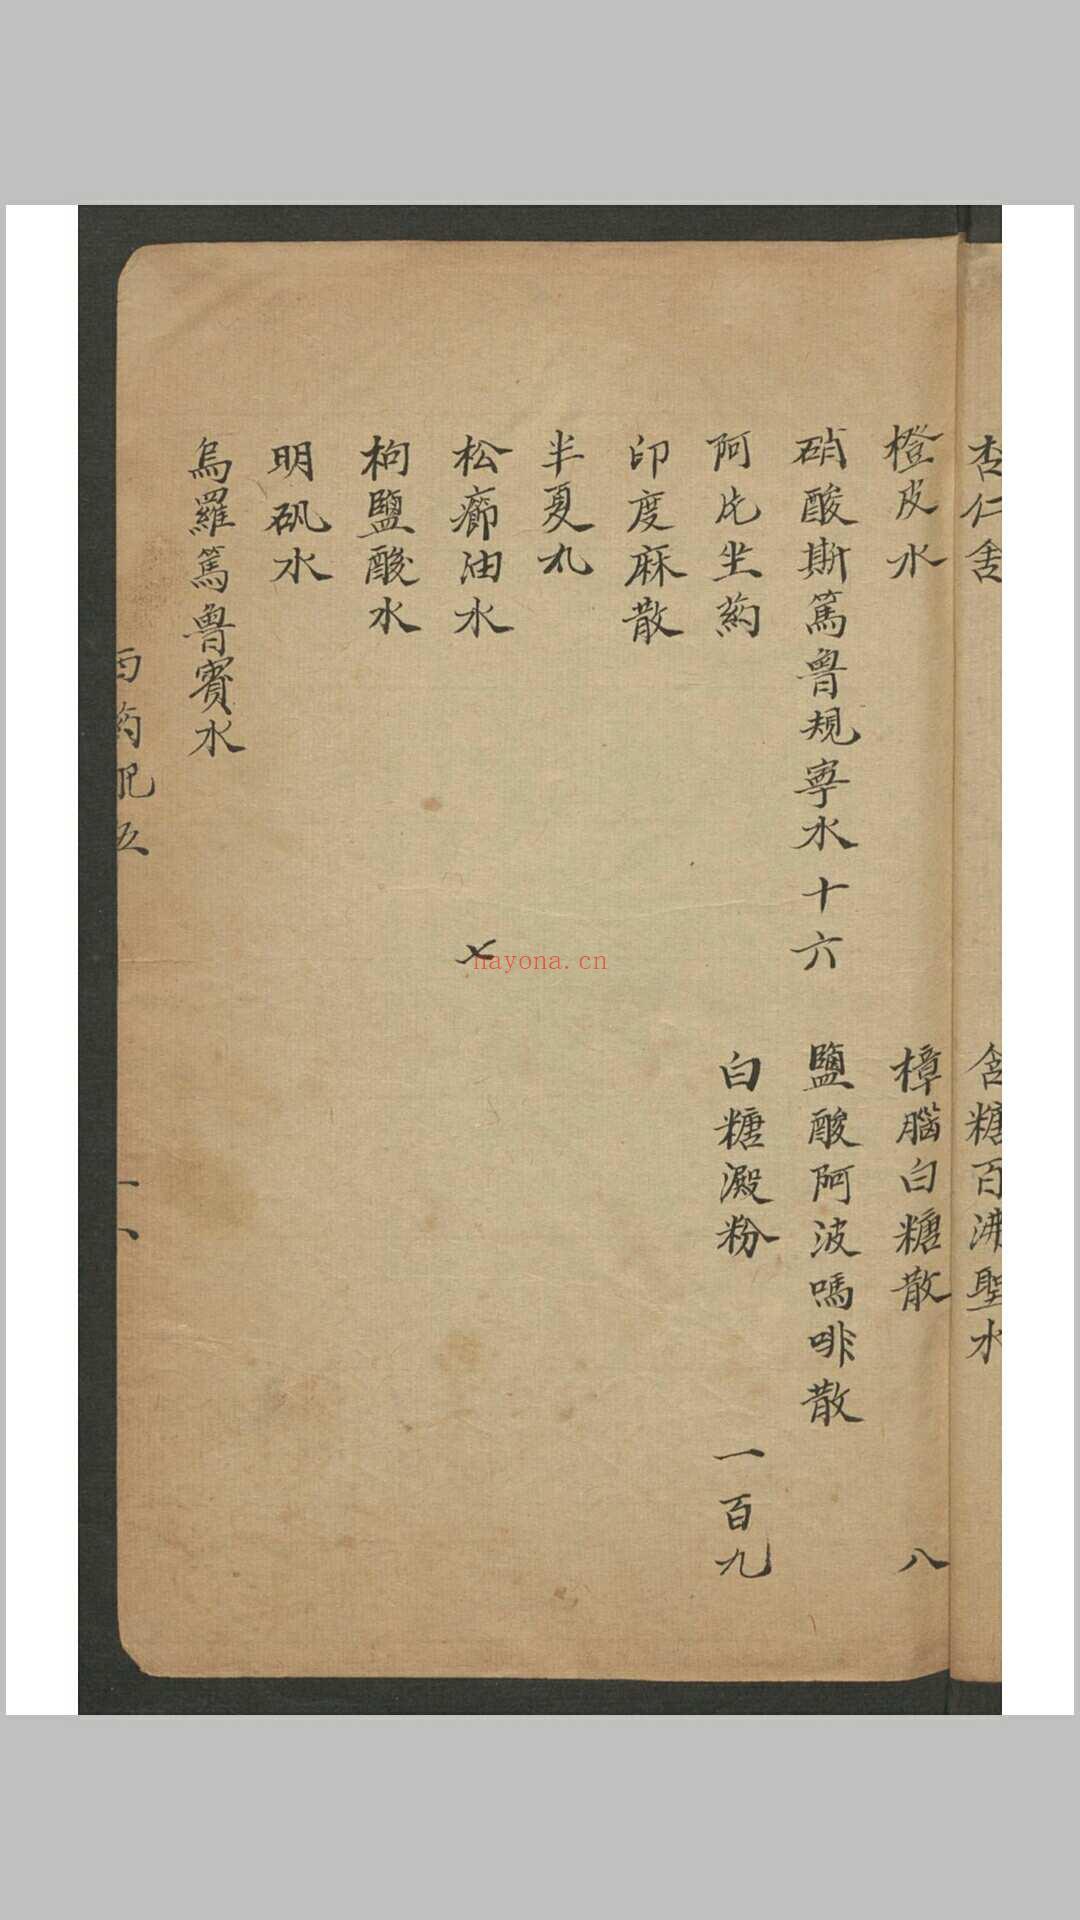 杏仁舍
含糖百沸聖水
橙皮水
樟腦白糖散
八
硝酸斯篤魯規寧水十六
鹽酸阿波嗎啡散
阿片坐药
白糖澱粉
一百九
印度麻散
半夏丸
松癤油水
七
枸鹽酸水
明矾水
烏羅篤魯賓水
西药
五
nayona.cn